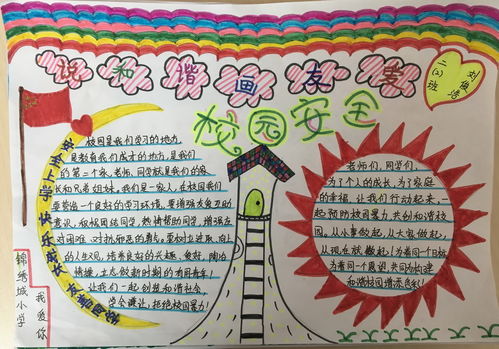 说和谐画友善
二(2)班
刘俊浩
校园安全
安全上学 快乐成长
校园是我们学习的地方,
是教育我们成才的地方,是我们
的第二个家,老师、同学就是我们的家
长和兄弟姐妹,我们是一家人,在校园我们
要营造一个良好的学习环境,要增强友爱互助
意识,积极团结同学,热情帮助同学,增强在
对困难、对挫折面
的人生观,培养良好的兴趣、爱好,陶冶
情操,立志做新时期的有用青年,
让我们一起创造和谐社会,
学会谦让,拒绝校园暴力!
老师们,同学们,
为了个人的成长,为了家庭
的幸福,让我们行动起来,一
起预防校园暴力,共创和谐校
园,从小事做起,从大家做起,
从现在就做起!为着同一个目标
为着同一个愿望,共同为构建
和谐校园增添色彩!
锦绣城小学
我爱你